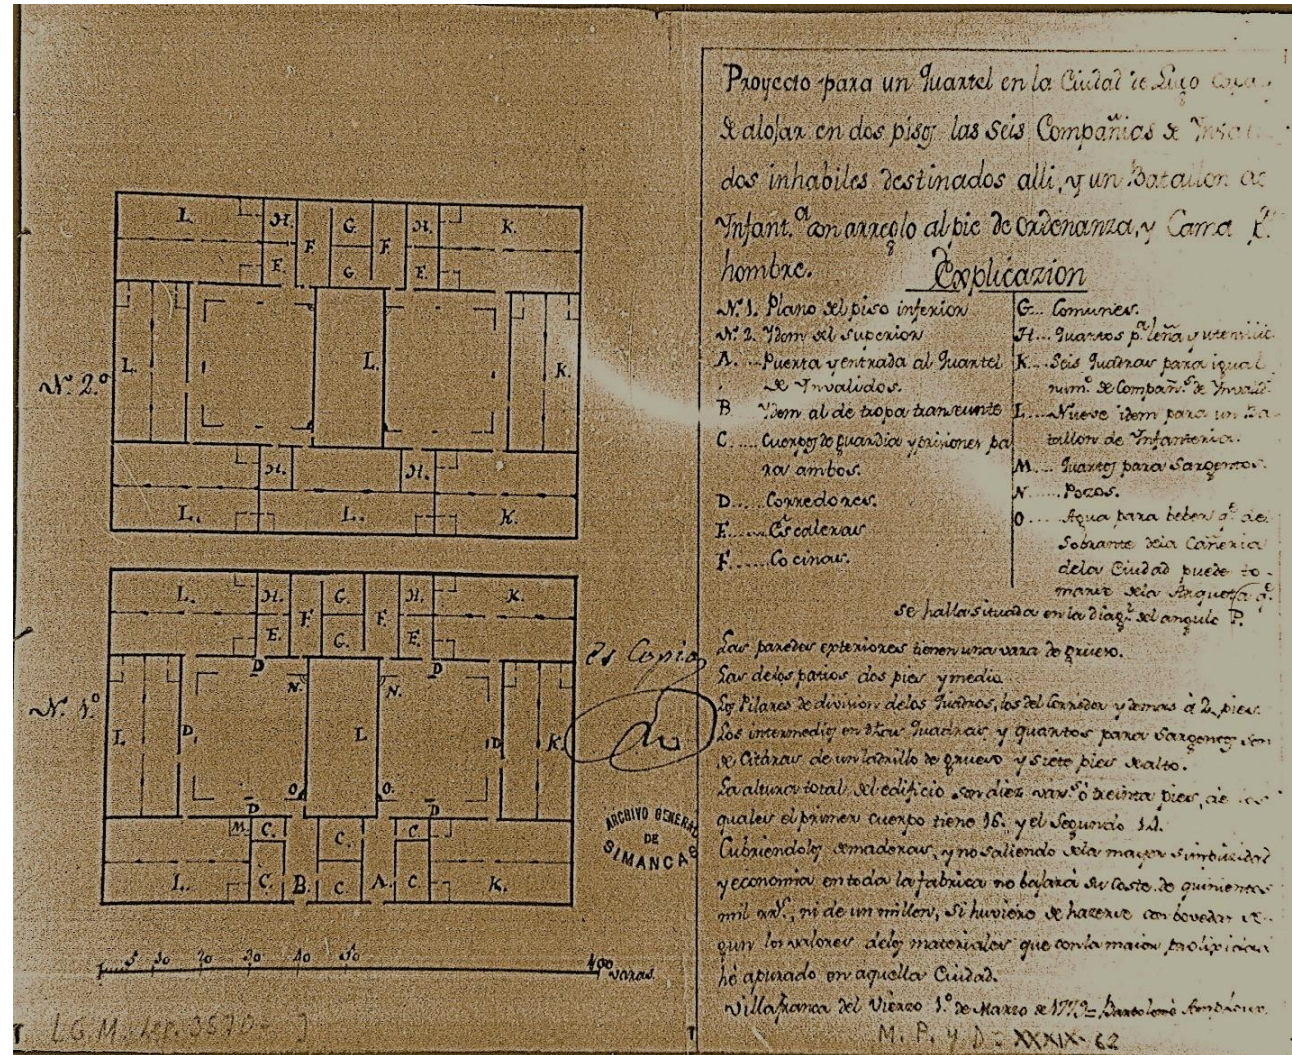 Proyecto para un Quartel en la Ciudad de Lugo capaz
de alojar en dos pisos las seis Compañias de
dos inhabiles destinados alli, y un Batallon de
Ynfant.ª con arreglo al pie de Ordenanza, y Cama p.ª
hombre.
Explicazion
N.º 1. Plano del piso inferior
N.º 2. Ydem del superior
A.... Puerta y entrada al Quartel
de Ynvalidos.
B Ydem al de tropa transeunte
C.... Cuerpos de guardia y prisiones pa
ra ambos.
D..... Corredores.
E..... Escaleras
F...... Cocinas.
G... Comunes.
H... Quartos p.ª leña y utensilios
K... Seis Quadras para igual
num.º de Compañ.s de Ynvalid.
L.... Nueve idem para un Ba
tallon de Ynfanteria.
M.... Quartos para Sargentos.
N..... Pozos.
O.... Agua para beber q.e del
Sobrante dela Cañeria
dela Ciudad puede to-
marse dela Arqueta q.e
se halla situada en la diag.l del angulo P.
Las paredes exteriores tienen una vara de grueso.
Las delos patios dos pies y medio.
Los Pilares de division delos Quadros, los del Corredor y demas à 2 pies.
Los intermedios en dhas Quadras, y quartos para Sargentos son
de Citáras de un ladrillo de grueso y siete pies de alto.
La altura total del edificio son diez var.s ò treinta pies, de los
quales el primer cuerpo tiene 16. y el Segundo 14.
Cubriendolos de maderas, y no saliendo dela mayor simplicidad
y economia en toda la fabrica no bajará su coste de quinientos
mil rr.s, ni de un millon, si huviese de hazerse con bovedas se-
gun los valores delos materiales que con la maior prolixidad
hé apurado en aquella Ciudad.
Villafranca del Vierzo 1.º de Marzo de 1773= Bartolomé
N.º 2.º
L. H. F. G. F. H. K.
E. G. E.
L. L. K.
H. H.
L. L. K.
N.º 1.º
L. H. F. G. F. H. K.
E. G. E.
D D
N. N.
L. D. L D K.
O. O.
D D
M. C. C. C.
L. C. B. C. A. C. K.
es Copia
ARCHIVO GENERAL
DE
SIMANCAS
5 10 20 30 40 50 100 varas
M. P. y D = XXXIX-62